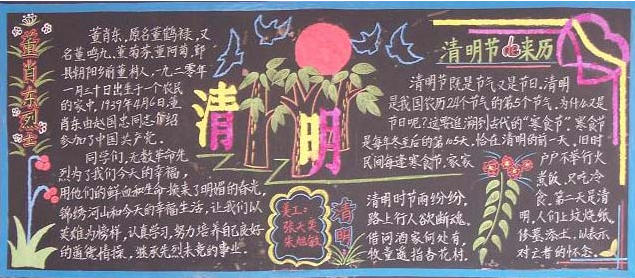 董肖东烈士
董肖东,原名董鹤禄,又
名董鸣九、董菊芬、董阿菊,鄞
县朝阳乡董村人,一九二零年
一月三十日出生于一个农民
的家中,1939年4月6日,董
肖东由赵国忠同志介绍
参加了中国共产党.
同学们,无数革命先
烈为了我们今天的幸福,
用他们的鲜血和生命换来了明媚的春光,
锦绣河山和今天的幸福生活,让我们以
英雄为榜样,认真学习,努力培养自己良好
的道德情操,继承先烈未竟的事业.
清明
美工:
清明
清明时节雨纷纷,
路上行人欲断魂.
借问酒家何处有,
牧童遥指杏花村.
清明节的来历
清明节既是节气又是节日.清明
是我国农历24个节气的第5个节气.为什么又是
节日呢?这要追溯到古代的“寒食节”.寒食节
是每年冬至后的第105天,恰在清明的前一天,旧时
民间每逢寒食节,家家
户户不举行火
煮饭,只吃冷
食.第二天是清
明,人们上坟烧纸,
修墓添土,以表示
对亡者的怀念.